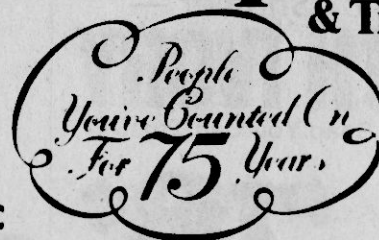 & T
People
You've Counted On
For 75 Years